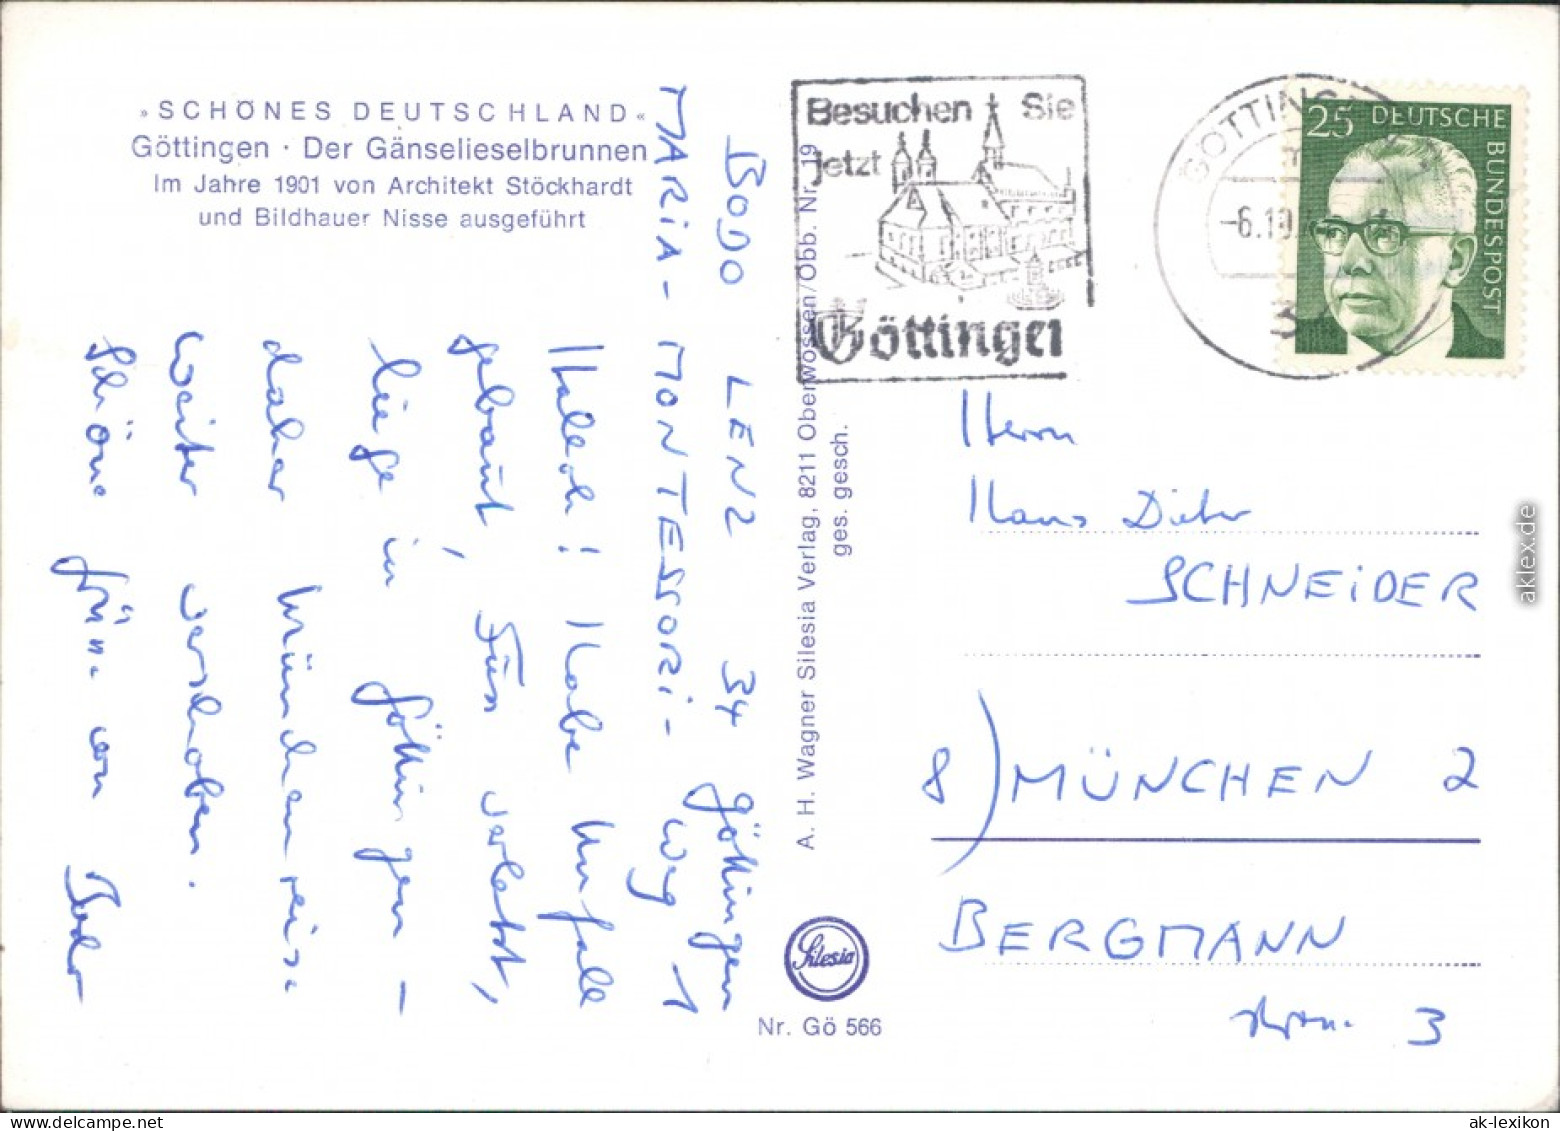 »SCHÖNES DEUTSCHLAND«
Göttingen · Der Gänselieselbrunnen
Im Jahre 1901 von Architekt Stöckhardt
und Bildhauer Nisse ausgeführt
BODO LENZ 34 Göttingen
MARiA-MONTESSORi-Weg 1
Halloh! Habe Unfall
gebaut, Fuss verletzt,
liege in Göttingen -
daher Münchenreise
weiter verschoben.
Schöne Grüße von Bodo
A. H. Wagner Silesia Verlag, 8211 Oberwössen/Obb. Nr. 19
ges. gesch.
Silesia
Nr. Gö 566
Besuchen Sie
jetzt
Göttingen
GÖTTINGEN
-6.10
3
25 DEUTSCHE
BUNDESPOST
Herrn
Hans Dieter
SCHNEiDER
8) MÜNCHEN 2
BERGMANN
str. 3
aklex.de
ak-lexikon